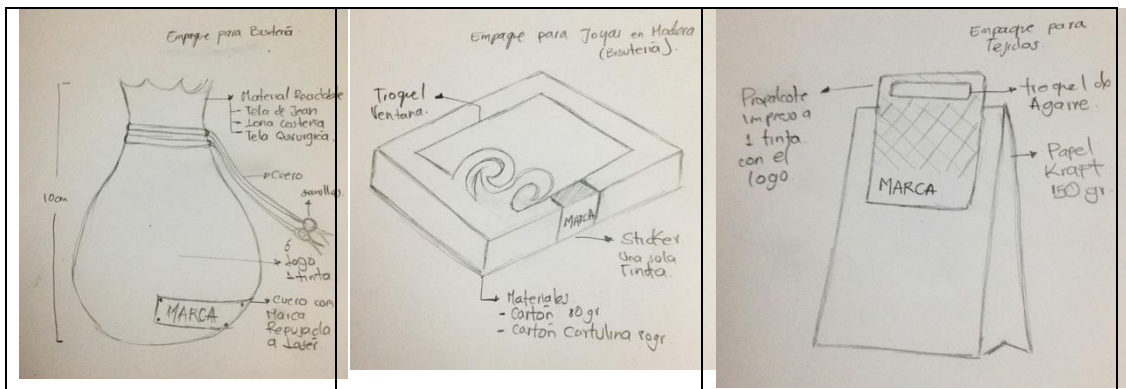 Empaque para Bisutería
Material Reciclable
Tela de Jean
Lona Costeña
Tela Quirurgica
Cuero
Semillas
10cm
ó
Logo
1 tinta
MARCA
Cuero con
Marca
Repujado
a Laser
Empaque para Joyas en Madera
(Bisutería).
Troquel
Ventana.
MARCA
Sticker
Una sola
Tinta.
Materiales.
- Cartón 80gr
- Cartón Cartulina 80gr.
Empaque para
Tejidos
Propalcote
impreso a
1 tinta.
con el
logo
troquel de
Agarre.
Papel
Kraft
150 gr.
MARCA